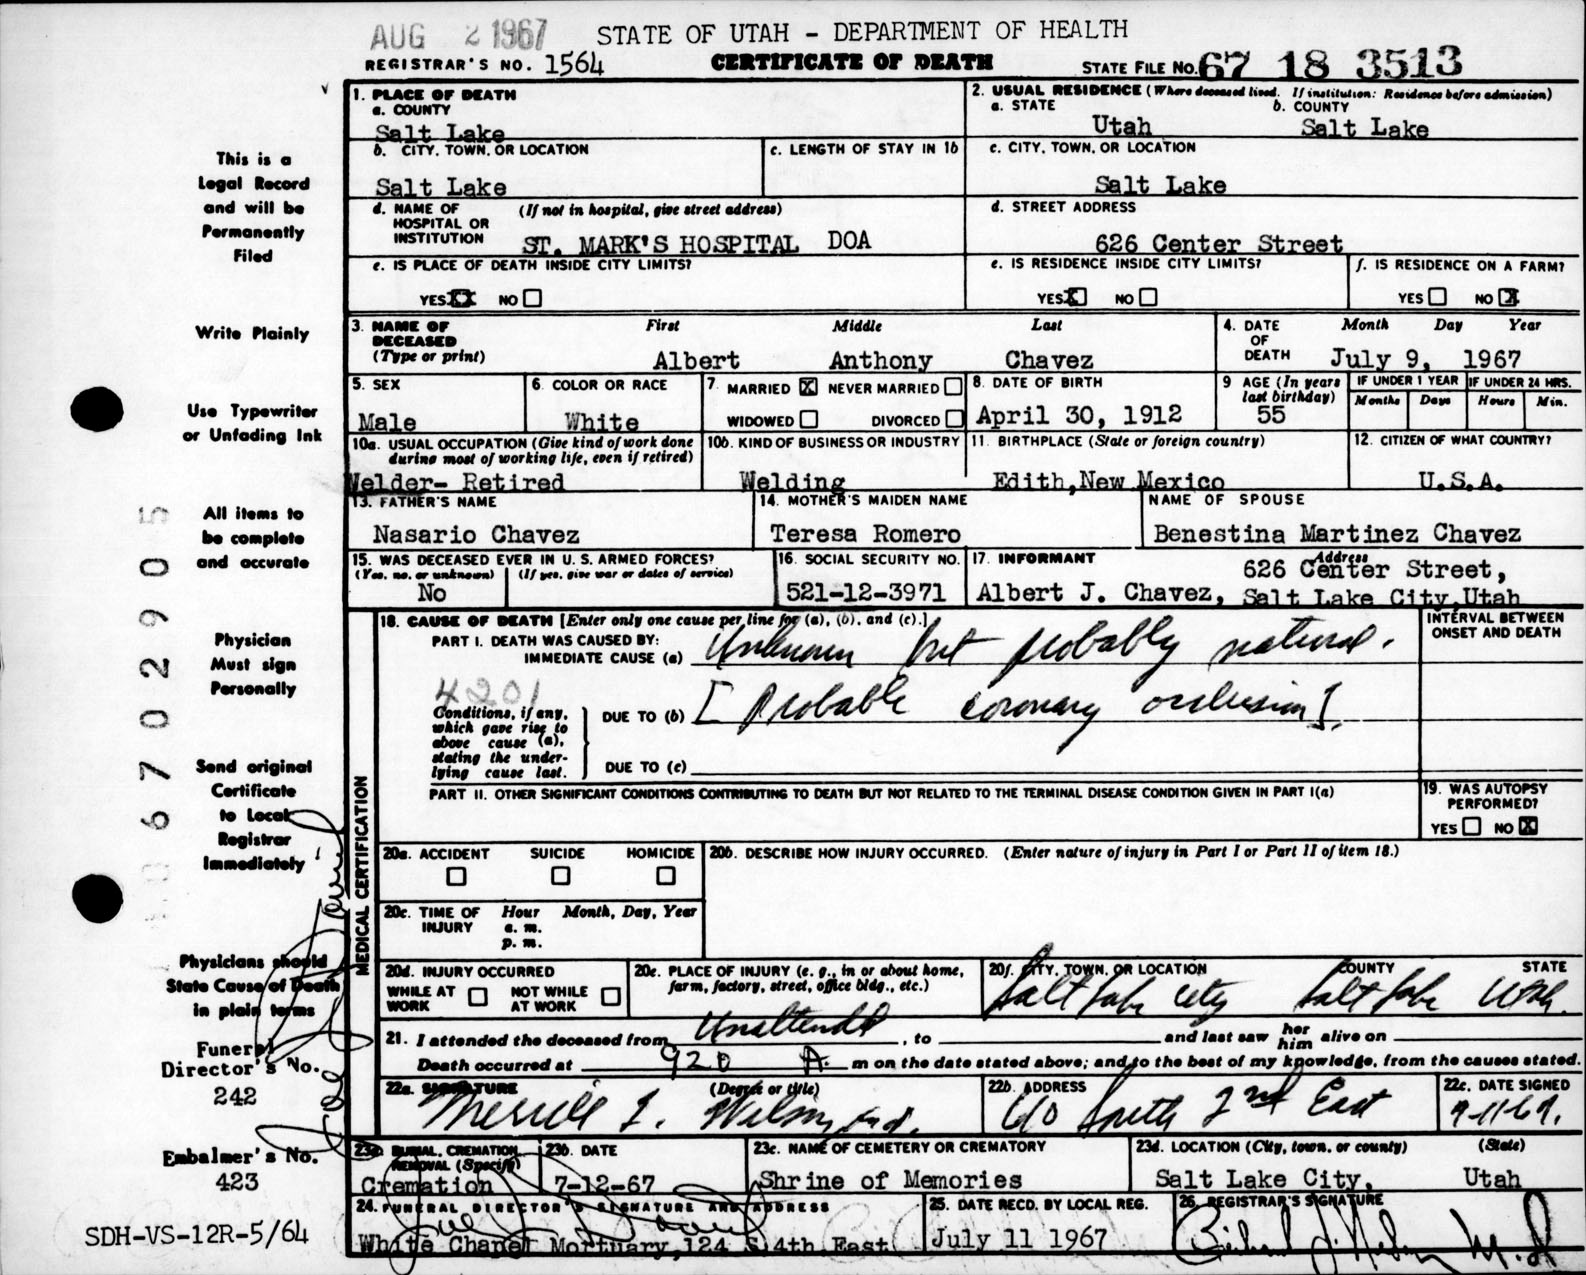 AUG 2 1967 STATE OF UTAH - DEPARTMENT OF HEALTH
REGISTRAR'S NO. 1564 CERTIFICATE OF DEATH STATE FILE NO. 67 18 3513
1. PLACE OF DEATH
a. COUNTY
Salt Lake
2. USUAL RESIDENCE (Where deceased lived. If institution: Residence before admission)
a. STATE b. COUNTY
Utah Salt Lake
b. CITY, TOWN, OR LOCATION
Salt Lake
c. LENGTH OF STAY IN 1b
c. CITY, TOWN, OR LOCATION
Salt Lake
d. NAME OF HOSPITAL OR INSTITUTION (If not in hospital, give street address)
ST. MARK'S HOSPITAL DOA
d. STREET ADDRESS
626 Center Street
e. IS PLACE OF DEATH INSIDE CITY LIMITS?
YES XX NO
e. IS RESIDENCE INSIDE CITY LIMITS?
YES X NO
f. IS RESIDENCE ON A FARM?
YES NO X
3. NAME OF DECEASED (Type or print)
First Middle Last
Albert Anthony Chavez
4. DATE OF DEATH
Month Day Year
July 9, 1967
5. SEX
Male
6. COLOR OR RACE
White
7. MARRIED X NEVER MARRIED
WIDOWED DIVORCED
8. DATE OF BIRTH
April 30, 1912
9 AGE (In years last birthday)
55
IF UNDER 1 YEAR
Months Days
IF UNDER 24 HRS.
Hours Min.
10a. USUAL OCCUPATION (Give kind of work done during most of working life, even if retired)
Welder- Retired
10b. KIND OF BUSINESS OR INDUSTRY
Welding
11. BIRTHPLACE (State or foreign country)
Edith, New Mexico
12. CITIZEN OF WHAT COUNTRY?
U.S.A.
13. FATHER'S NAME
Nasario Chavez
14. MOTHER'S MAIDEN NAME
Teresa Romero
NAME OF SPOUSE
Benestina Martinez Chavez
15. WAS DECEASED EVER IN U. S. ARMED FORCES?
(Yes, no, or unknown) (If yes, give war or dates of service)
No
16. SOCIAL SECURITY NO.
521-12-3971
17. INFORMANT Address
Albert J. Chavez, 626 Center Street,
Salt Lake City, Utah
MEDICAL CERTIFICATION
18. CAUSE OF DEATH [Enter only one cause per line for (a), (b), and (c).]
INTERVAL BETWEEN ONSET AND DEATH
PART I. DEATH WAS CAUSED BY:
IMMEDIATE CAUSE (a) Unknown but probably natural.
4201
Conditions, if any, which gave rise to above cause (a), stating the underlying cause last.
DUE TO (b) [Probable coronary occlusion].
DUE TO (c)
PART II. OTHER SIGNIFICANT CONDITIONS CONTRIBUTING TO DEATH BUT NOT RELATED TO THE TERMINAL DISEASE CONDITION GIVEN IN PART I(a)
19. WAS AUTOPSY PERFORMED?
YES NO X
20a. ACCIDENT SUICIDE HOMICIDE
20b. DESCRIBE HOW INJURY OCCURRED. (Enter nature of injury in Part I or Part II of item 18.)
20c. TIME OF INJURY Hour Month, Day, Year
a. m.
p. m.
20d. INJURY OCCURRED
WHILE AT WORK NOT WHILE AT WORK
20e. PLACE OF INJURY (e. g., in or about home, farm, factory, street, office bldg., etc.)
20f. CITY, TOWN, OR LOCATION COUNTY STATE
Salt Lake City Salt Lake Utah.
21. I attended the deceased from Unattended, to and last saw her him alive on
Death occurred at 920 A. m on the date stated above; and to the best of my knowledge, from the causes stated.
22a. SIGNATURE (Degree or title)
Merrill L. Wilson, M.D.
22b. ADDRESS
610 South 2nd East
22c. DATE SIGNED
7-11-67.
23a. BURIAL, CREMATION REMOVAL (Specify)
Cremation
23b. DATE
7-12-67
23c. NAME OF CEMETERY OR CREMATORY
Shrine of Memories
23d. LOCATION (City, town, or county) (State)
Salt Lake City, Utah
24. FUNERAL DIRECTOR'S SIGNATURE AND ADDRESS
White Chapel Mortuary, 124 S. 4th East
25. DATE RECD. BY LOCAL REG.
July 11 1967
26. REGISTRAR'S SIGNATURE
M.D.
This is a
Legal Record
and will be
Permanently
Filed
Write Plainly
Use Typewriter
or Unfading Ink
All items to
be complete
and accurate
Physician
Must sign
Personally
Send original
Certificate
to Local
Registrar
Immediately
Physicians should
State Cause of Death
in plain terms
Funeral
Director's No.
242
Embalmer's No.
423
SDH-VS-12R-5/64
6702905